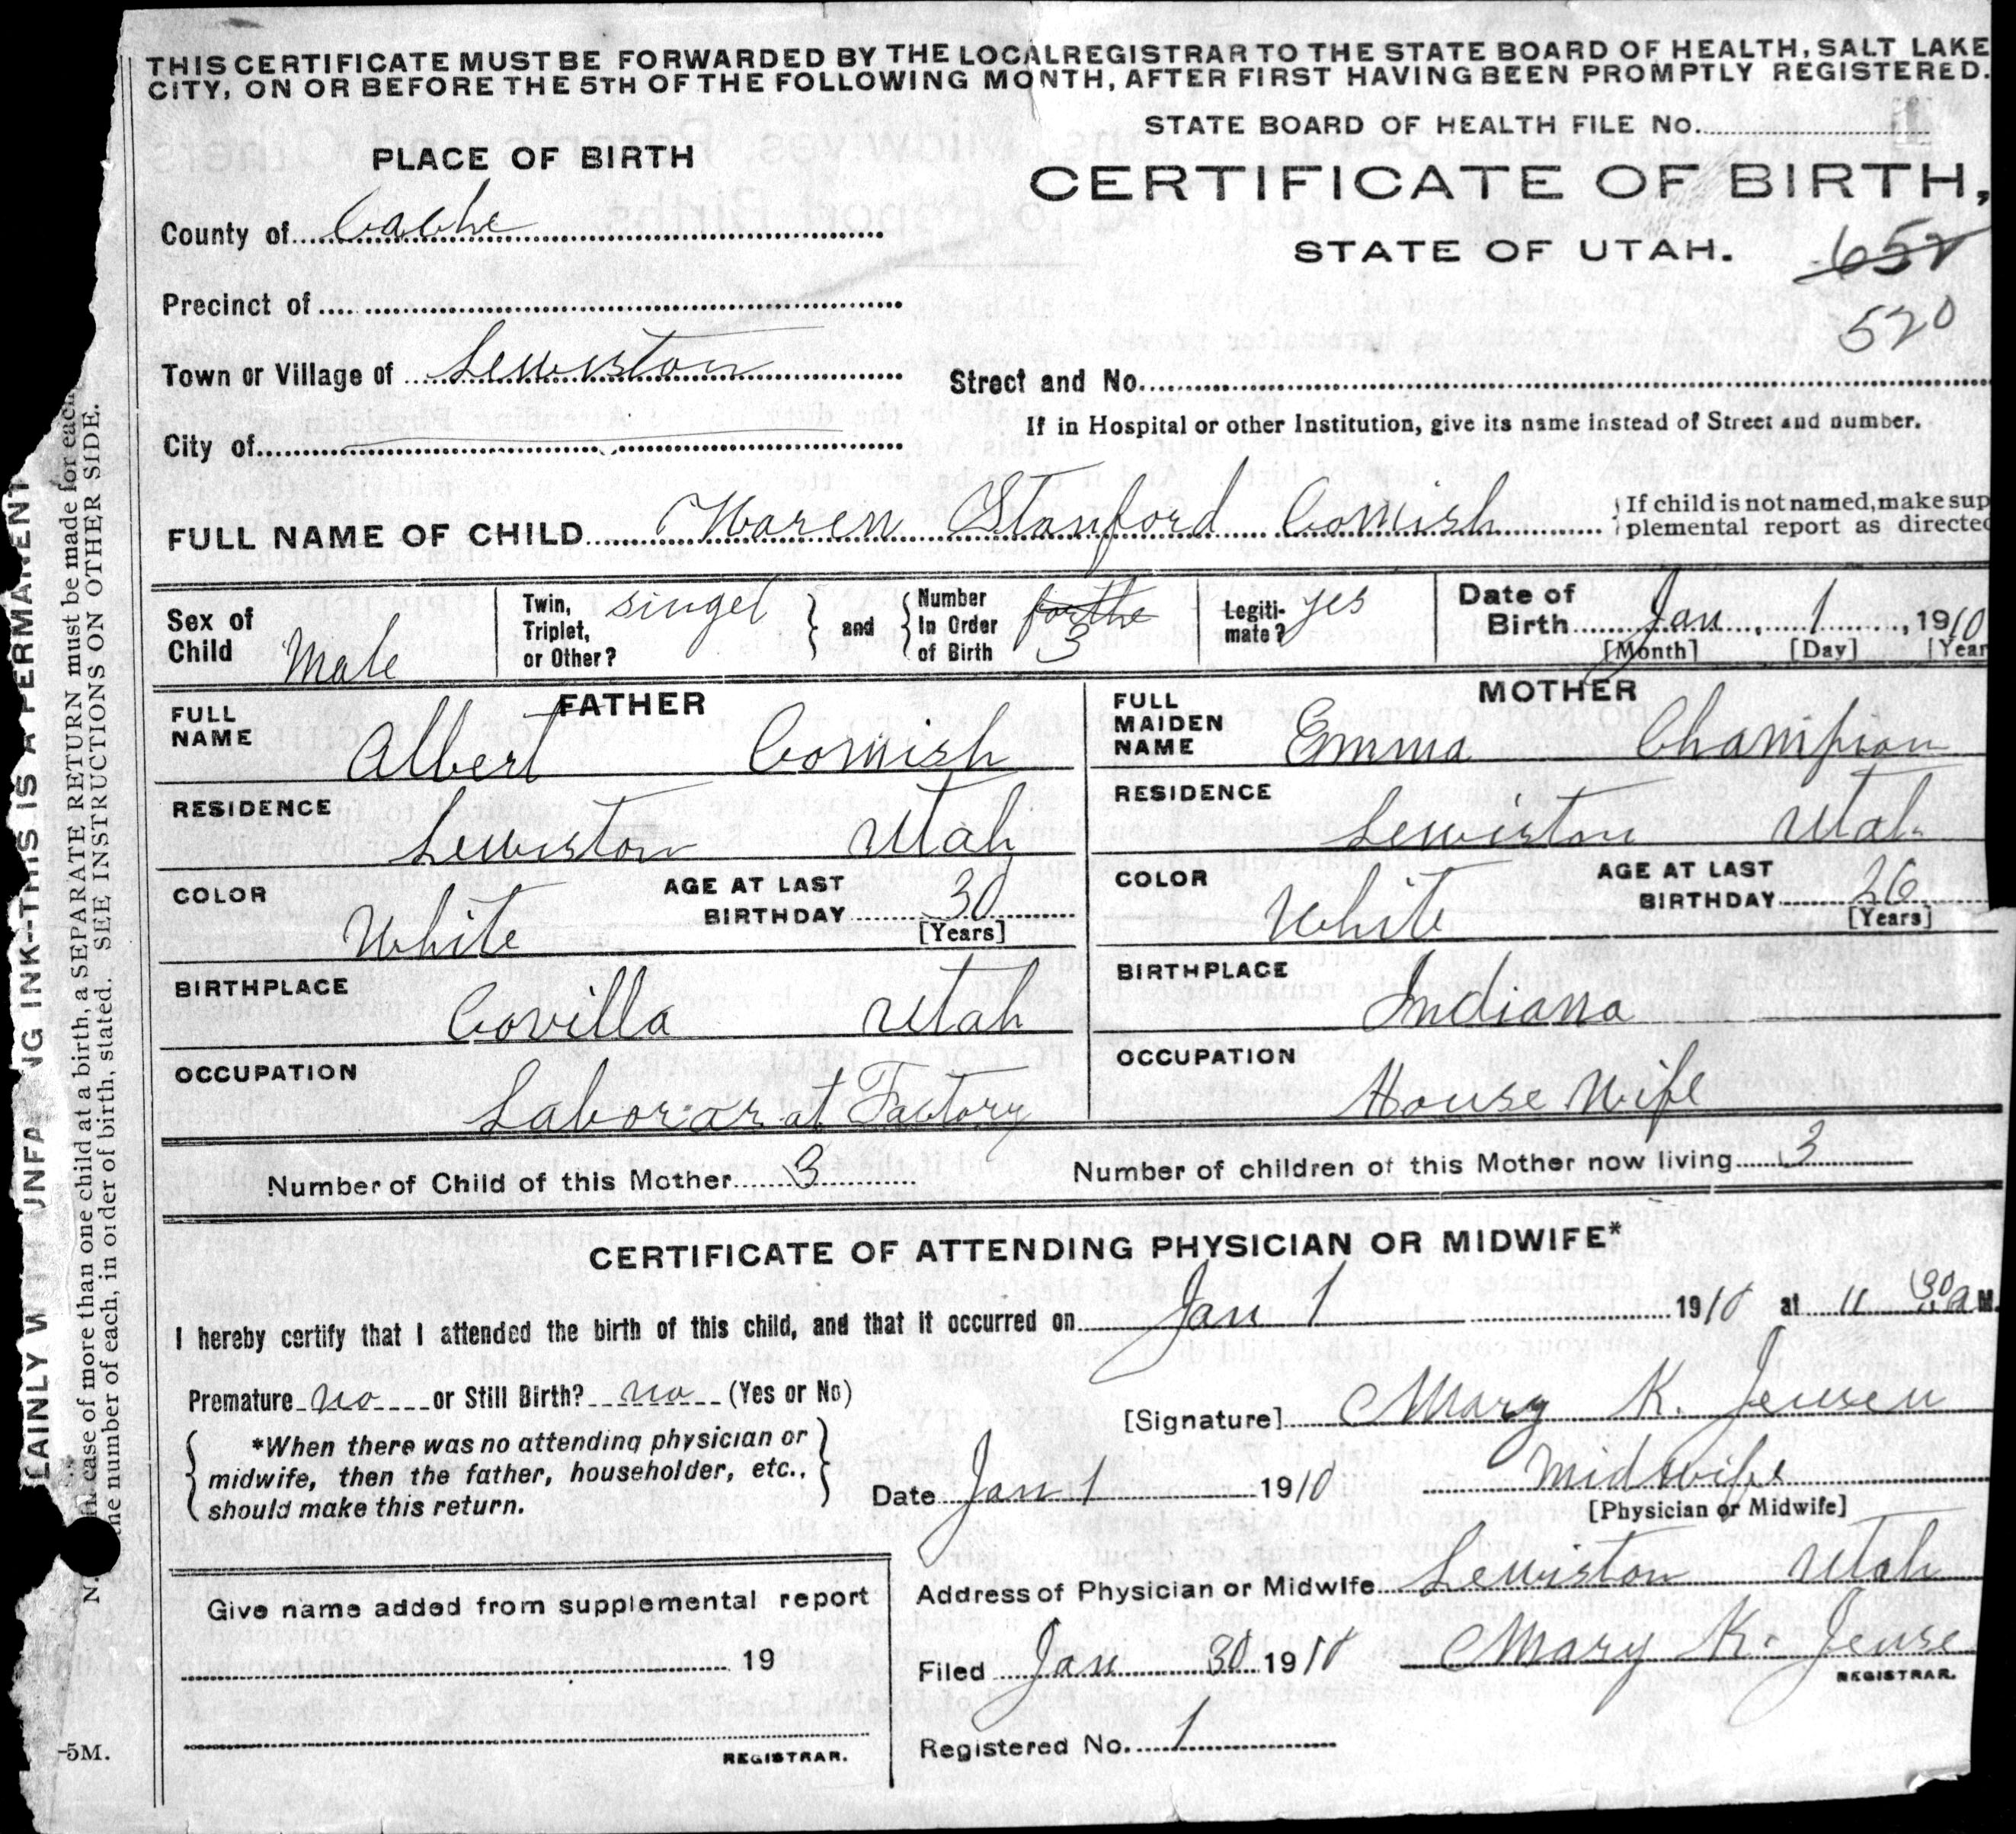 THIS CERTIFICATE MUST BE FORWARDED BY THE LOCAL REGISTRAR TO THE STATE BOARD OF HEALTH, SALT LAKE
CITY, ON OR BEFORE THE 5TH OF THE FOLLOWING MONTH, AFTER FIRST HAVING BEEN PROMPTLY REGISTERED.
STATE BOARD OF HEALTH FILE No. 1
PLACE OF BIRTH
CERTIFICATE OF BIRTH,
County of Cache
STATE OF UTAH.
652
520
Precinct of
Town or Village of Lewiston
Street and No.
If in Hospital or other Institution, give its name instead of Street and number.
City of
FULL NAME OF CHILD Waren Stanford Cornish
If child is not named, make sup
plemental report as directed
Sex of Child Male
Twin, Triplet, or Other? singel
and
Number In Order of Birth forthe 3
Legiti-mate? yes
Date of Birth Jan 1, 1910
[Month] [Day] [Year
FATHER
FULL NAME Albert Cornish
RESIDENCE Lewiston Utah
COLOR White
AGE AT LAST BIRTHDAY 30
[Years]
BIRTHPLACE Covilla Utah
OCCUPATION Laborar at Factory
MOTHER
FULL MAIDEN NAME Emma Champion
RESIDENCE Lewiston Utah
COLOR White
AGE AT LAST BIRTHDAY 26
[Years]
BIRTHPLACE Indiana
OCCUPATION House Wife
Number of Child of this Mother 3
Number of children of this Mother now living 3
CERTIFICATE OF ATTENDING PHYSICIAN OR MIDWIFE*
I hereby certify that I attended the birth of this child, and that it occurred on Jan 1 1910 at 11 30 a M.
Premature no or Still Birth? no (Yes or No)
*When there was no attending physician or
midwife, then the father, householder, etc.,
should make this return.
[Signature] Mary K. Jensen
Date Jan 1 1910
Midwife
[Physician or Midwife]
Address of Physician or Midwife Lewiston Utah
Give name added from supplemental report
19
REGISTRAR.
Filed Jan 30 1910
Mary K. Jense
REGISTRAR.
Registered No. 1
LAINLY WITH UNFA NG INK--THIS IS A PERMANENT
N. In case of more than one child at a birth, a SEPARATE RETURN must be made for each,
the number of each, in order of birth, stated. SEE INSTRUCTIONS ON OTHER SIDE.
-5M.